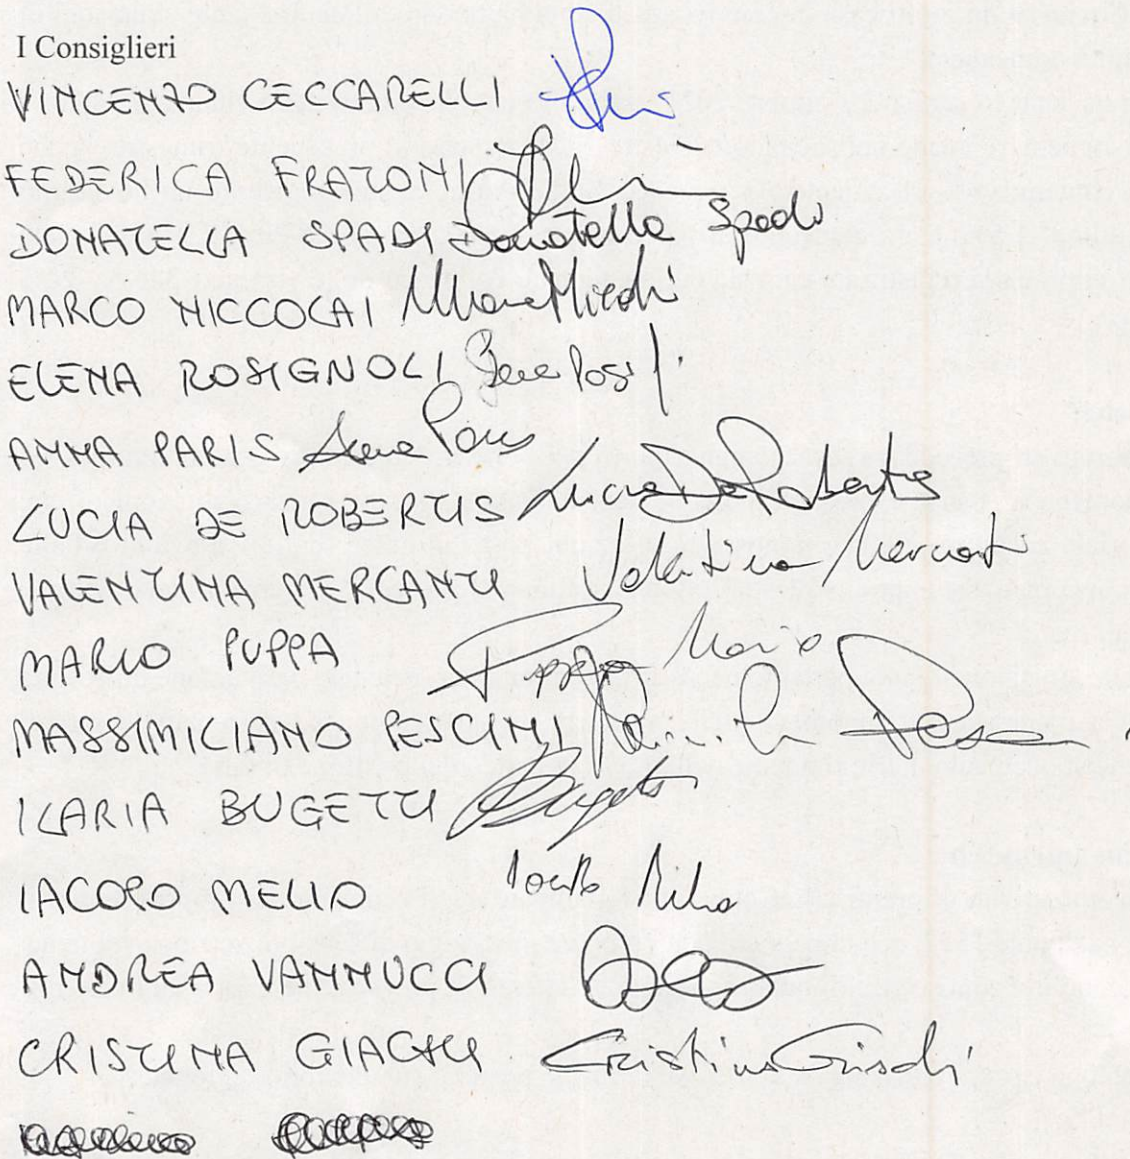 I Consiglieri
VINCENZO CECCARELLI
FEDERICA FRATONI
DONATELLA SPADI Donatella Spadi
MARCO NICCOLAI
ELENA ROSIGNOLI
ANNA PARIS Anna Paris
LUCIA DE ROBERTIS Lucia De Robertis
VALENTINA MERCANTI Valentina Mercanti
MARIO PUPPA Puppa Mario
MASSIMILIANO PESCINI
ILARIA BUGETTI Bugetti
IACOPO MELIO
ANDREA VANNUCCI
CRISTINA GIACHI Cristina Giachi